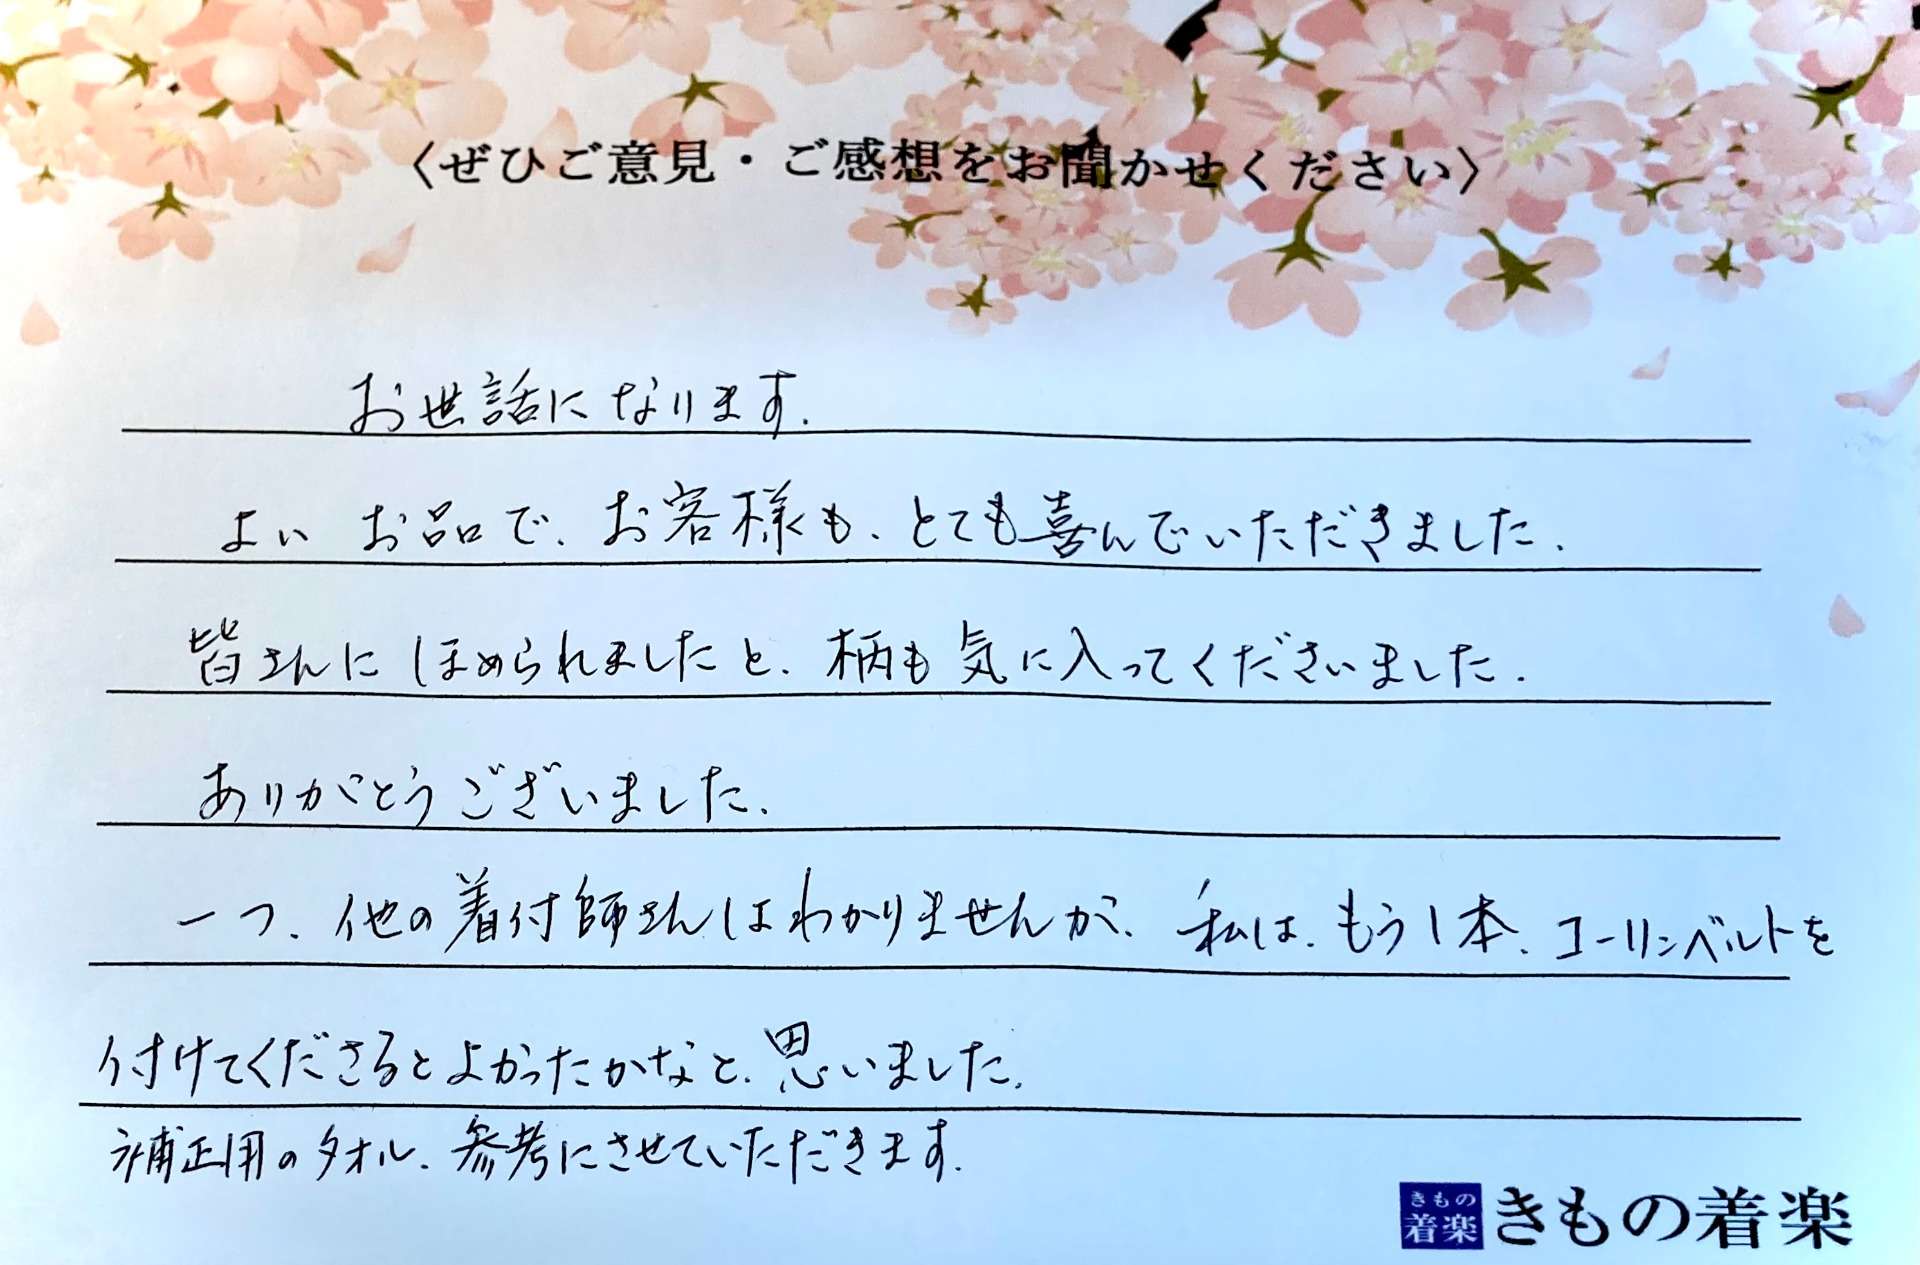 〈ぜひご意見・ご感想をお聞かせください〉
お世話になります.
よい お品で、お客様も、とても喜んでいただきました.
皆さんに ほめられましたと、柄も 気に入ってくださいました.
ありがとうございました.
一つ、他の着付師さんはわかりませんが、私は、もう1本、コーリンベルトを
付けてくださるとよかったかなと、思いました.
補正用のタオル、参考にさせていただきます.
きもの
着楽
きもの着楽